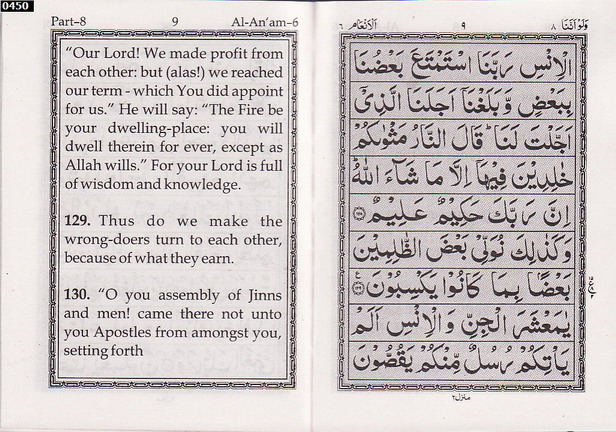 0450
Part-8 9 Al-An'am-6
"Our Lord! We made profit from
each other: but (alas!) we reached
our term - which You did appoint
for us." He will say: "The Fire be
your dwelling-place: you will
dwell therein for ever, except as
Allah wills." For your Lord is full
of wisdom and knowledge.
129. Thus do we make the
wrong-doers turn to each other,
because of what they earn.
130. "O you assembly of Jinns
and men! came there not unto
you Apostles from amongst you,
setting forth
الانعام ٦ ٩ ولو اننا ٨
الْاِنْسِ رَبَّنَا اسْتَمْتَعَ بَعْضُنَا
بِبَعْضٍ وَّبَلَغْنَاۤ اَجَلَنَا الَّذِیْۤ
اَجَّلْتَ لَنَا ؕ قَالَ النَّارُ مَثْوٰىكُمْ
خٰلِدِیْنَ فِیْهَاۤ اِلَّا مَا شَآءَ اللّٰهُ ؕ
اِنَّ رَبَّكَ حَكِیْمٌ عَلِیْمٌ ١٢٨
وَكَذٰلِكَ نُوَلِّیْ بَعْضَ الظّٰلِمِیْنَ
بَعْضًۢا بِمَا كَانُوْا یَكْسِبُوْنَ ١٢٩
یٰمَعْشَرَ الْجِنِّ وَالْاِنْسِ اَلَمْ
یَاْتِكُمْ رُسُلٌ مِّنْكُمْ یَقُصُّوْنَ
منزل ٢